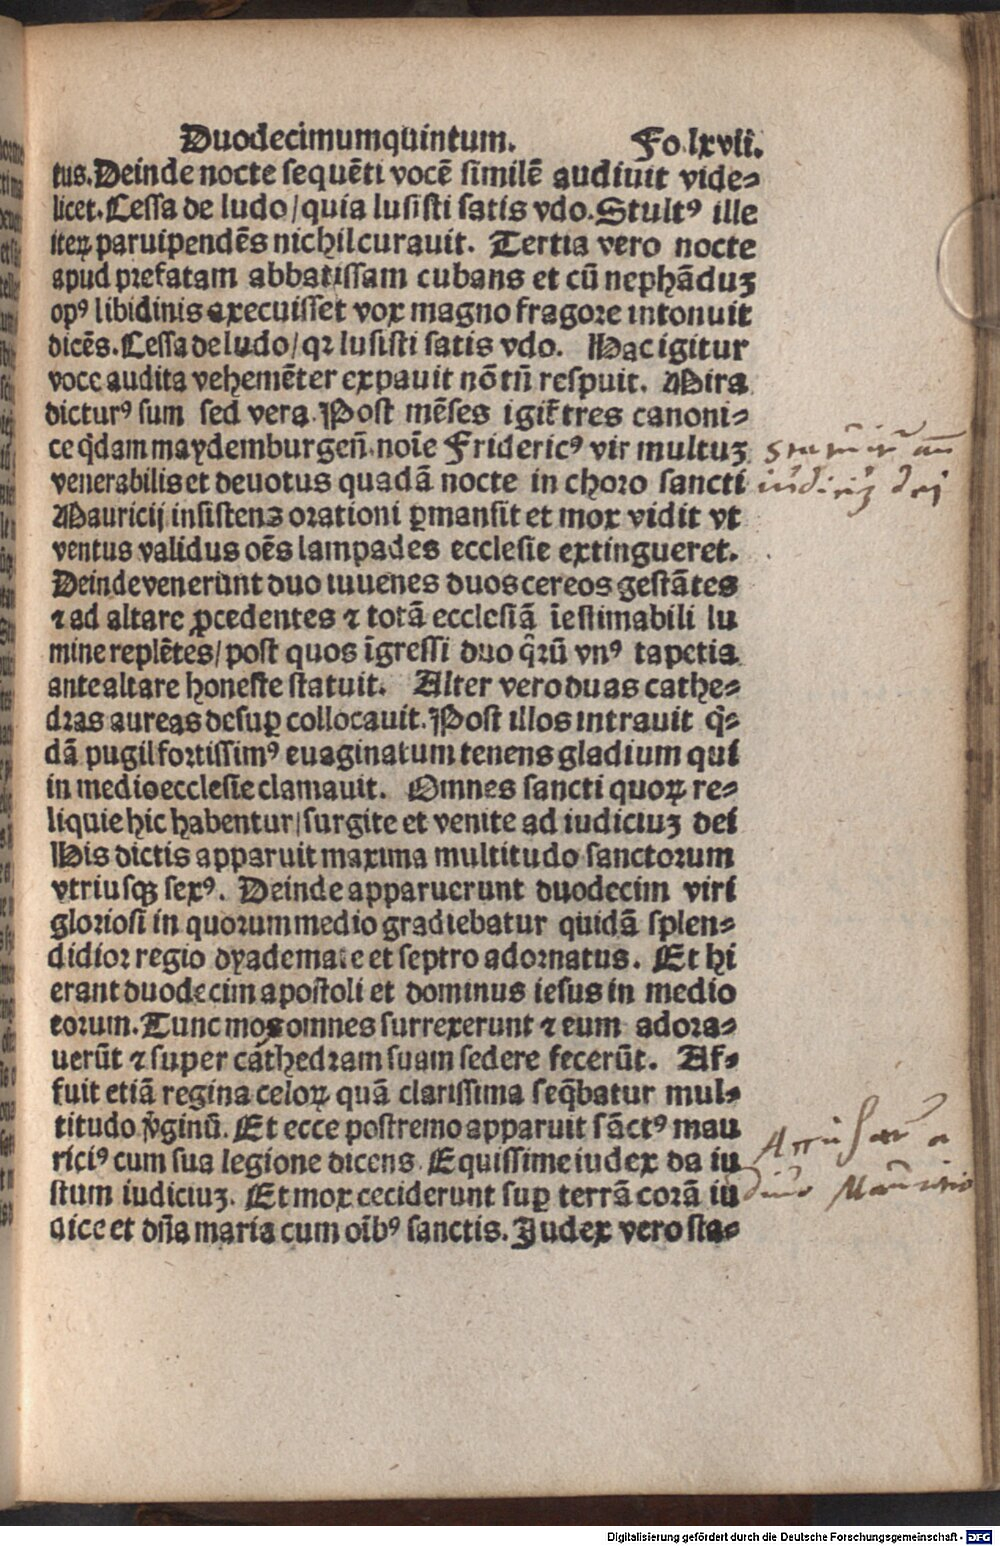 Duodecimumquintum. Fo.lxvii.
tus. Deinde nocte sequēti vocē similē audiuit vide⸗
licet. Cessa de ludo/quia lusisti satis vdo. Stultꝰ ille
iteꝝ paruipendēs nichil curauit. Tertia vero nocte
apud prefatam abbatissam cubans et cū nephāduꝫ
opꝰ libidinis execuisset vox magno fragore intonuit
dicēs. Cessa de ludo/qꝛ lusisti satis vdo. Hac igitur
voce audita vehemēter expauit nō tñ respuit. Mira
dicturꝰ sum sed vera. Post mēses igit̄ tres canoni⸗
ce q̇dam maydemburgeñ. noīe Fridericꝰ vir multuꝫ
venerabilis et deuotus quadā nocte in choro sancti
Mauricij insistens orationi ꝑmansit et mox vidit vt
ventus validus oēs lampades ecclesie extingueret.
Deinde venerunt duo iuuenes duos cereos gestātes
⁊ ad altare ꝓcedentes ⁊ totā ecclesiā īestimabili lu
mine replētes/post quos īgressi duo q̄rū vnꝰ tapetia
ante altare honeste statuit. Alter vero duas cathe⸗
dras aureas desuꝑ collocauit. Post illos intrauit q̇⸗
dā pugil fortissimꝰ euaginatum tenens gladium qui
in medio ecclesie clamauit. Omnes sancti quoꝝ re⸗
liquie hic habentur/surgite et venite ad iudiciuꝫ dei
His dictis apparuit maxima multitudo sanctorum
vtriusqꝫ sexꝰ. Deinde apparuerunt duodecim viri
gloriosi in quorum medio gradiebatur quidā splen⸗
didior regio dyademate et septro adornatus. Et hi
erant duodecim apostoli et dominus iesus in medio
eorum. Tunc mox omnes surrexerunt ⁊ eum adora⸗
uerūt ⁊ super cathedram suam sedere fecerūt. Af⸗
fuit etiā regina celoꝝ quā clarissima seq̄batur mul⸗
titudo v̾ginū. Et ecce postremo apparuit sāctꝰ mau
riciꝰ cum sua legione dicens. Equissime iudex da iu
stum iudiciuꝫ. Et mox ceciderunt suꝑ terrā corā iu
dice et dña maria cum oībꝰ sanctis. Judex vero sta⸗
iudiciū dei
Accusatur a
diuo Mauritio